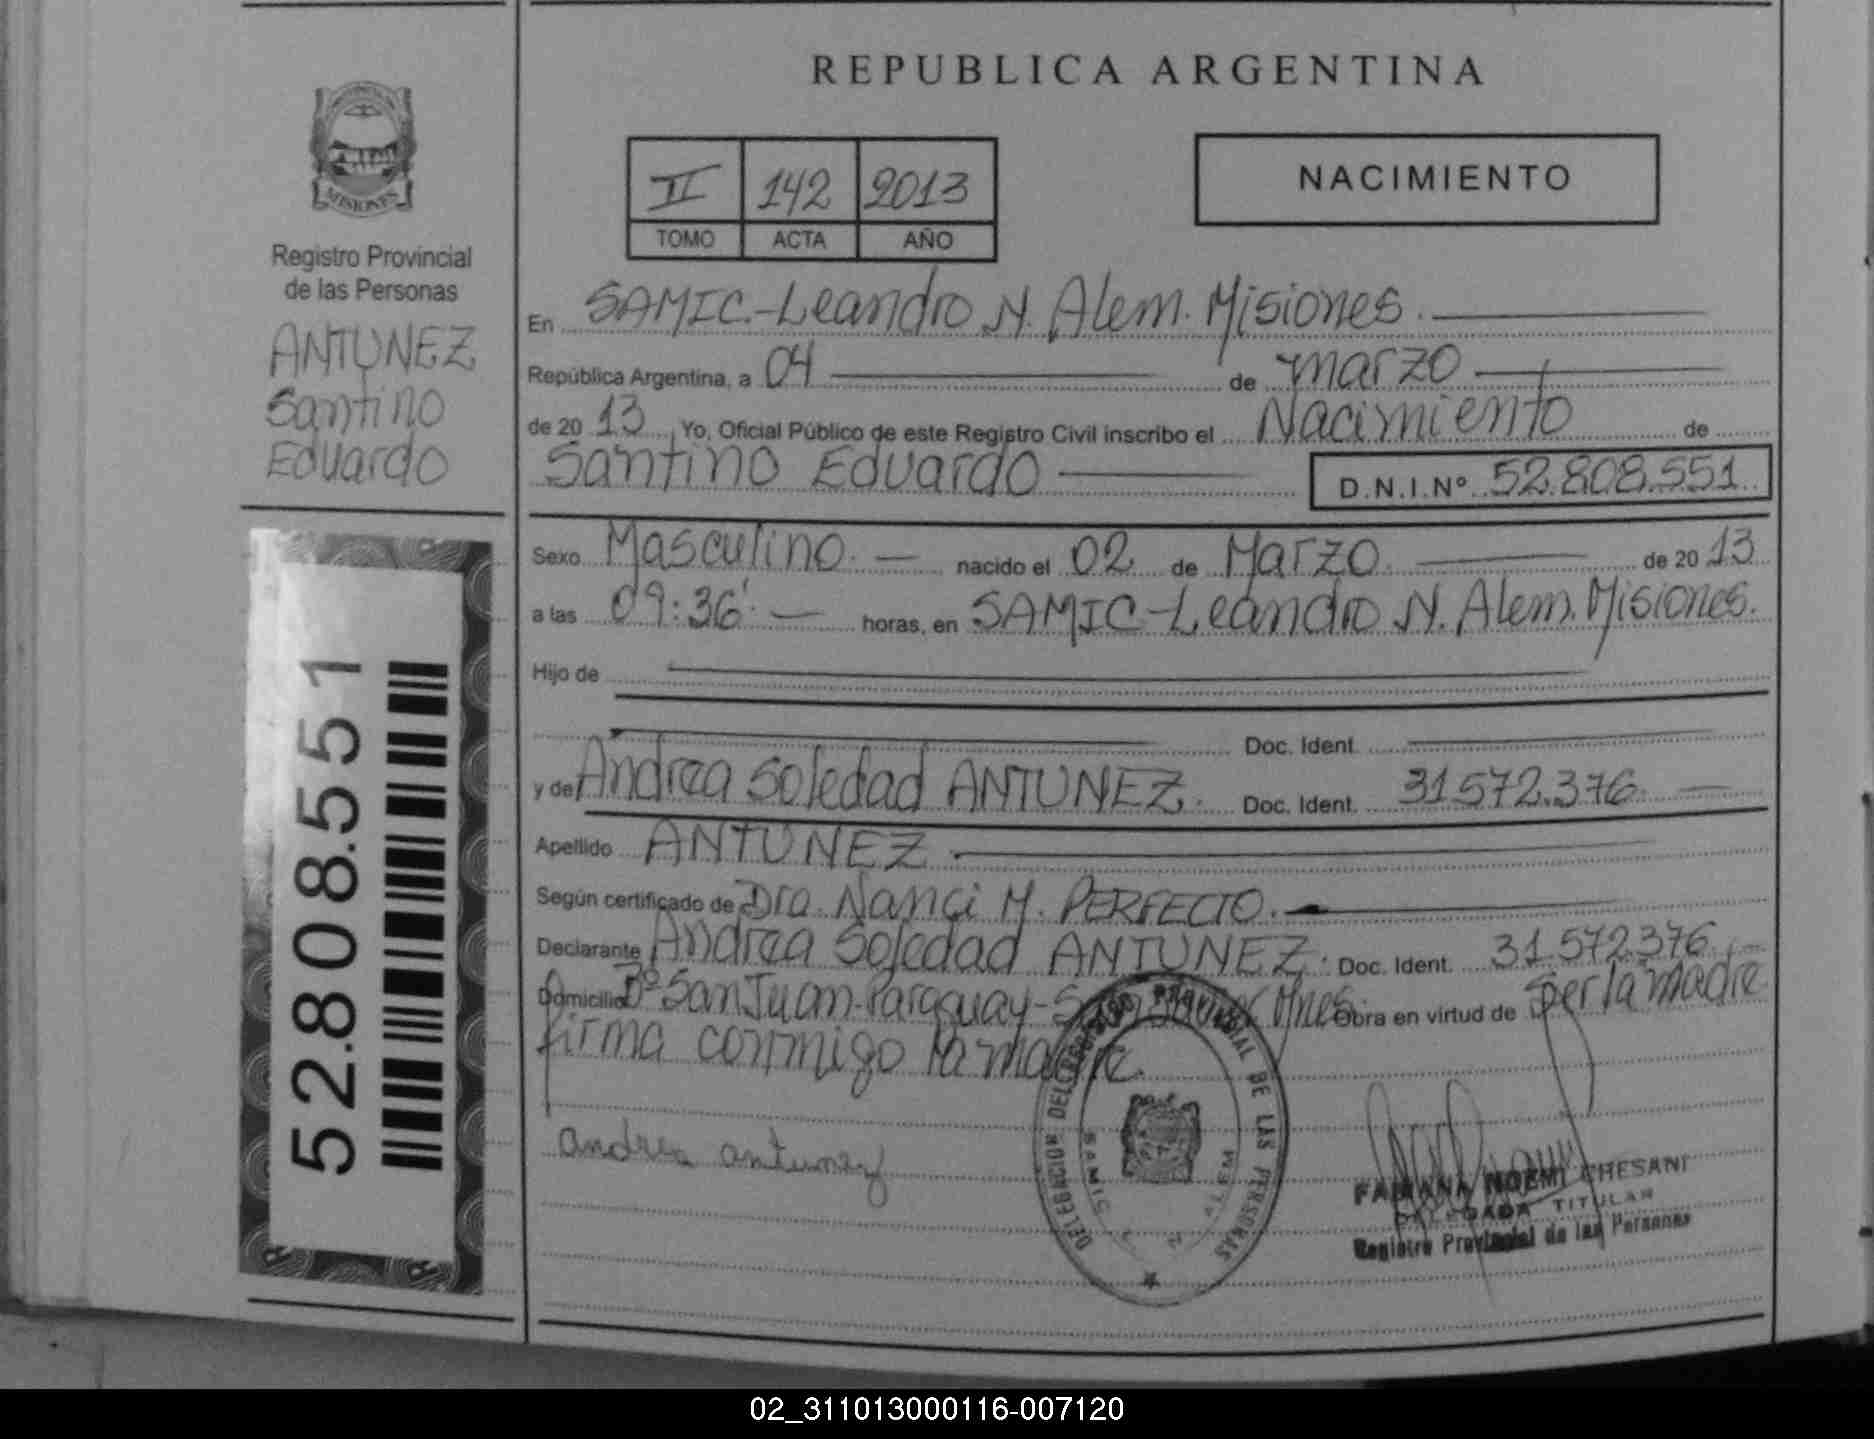 REPUBLICA ARGENTINA
MISIONES
Registro Provincial
de las Personas
ANTUNEZ
Santino
Eduardo
52.808.551
II 142 2013
TOMO ACTA AÑO
NACIMIENTO
En SAMIC-Leandro N. Alem. Misiones.
República Argentina, a 04 de marzo
de 20 13 Yo, Oficial Público de este Registro Civil inscribo el Nacimiento de
Santino Eduardo D.N.I.Nº 52.808.551
Sexo Masculino. nacido el 02 de Marzo de 20 13
a las 09:36' horas, en SAMIC-Leandro N. Alem. Misiones.
Hijo de
Doc. Ident.
y de Andrea Soledad ANTUNEZ. Doc. Ident. 31.572.376
Apellido ANTUNEZ
Según certificado de Dra. Nanci M. PERFECTO.
Declarante Andrea Soledad ANTUNEZ. Doc. Ident. 31.572.376
Domicilio Bº San Juan-Paraguay- Obra en virtud de ser la madre
firma conmigo la madre.
andrea antunez
DELEGACION DEL REGISTRO PROVINCIAL DE LAS PERSONAS
SAMIC L. N. ALEM
FABIANA NOEMI CHESANI
DELEGADA TITULAR
Registro Provincial de las Personas
02_311013000116-007120